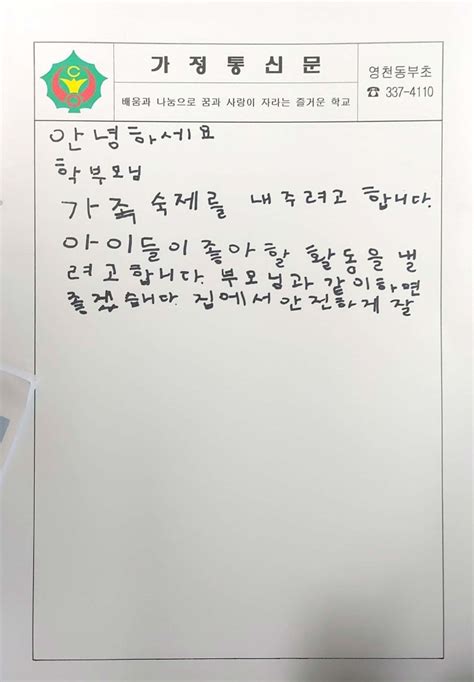 가정통신문
영천동부초
☎ 337-4110
배움과 나눔으로 꿈과 사랑이 자라는 즐거운 학교
안녕하세요
학부모님
가족 숙제를 내주려고 합니다.
아이들이 좋아할 활동을 낼
려고합니다. 부모님과 같이하면
좋겠습니다. 집에서 안전하게 잘